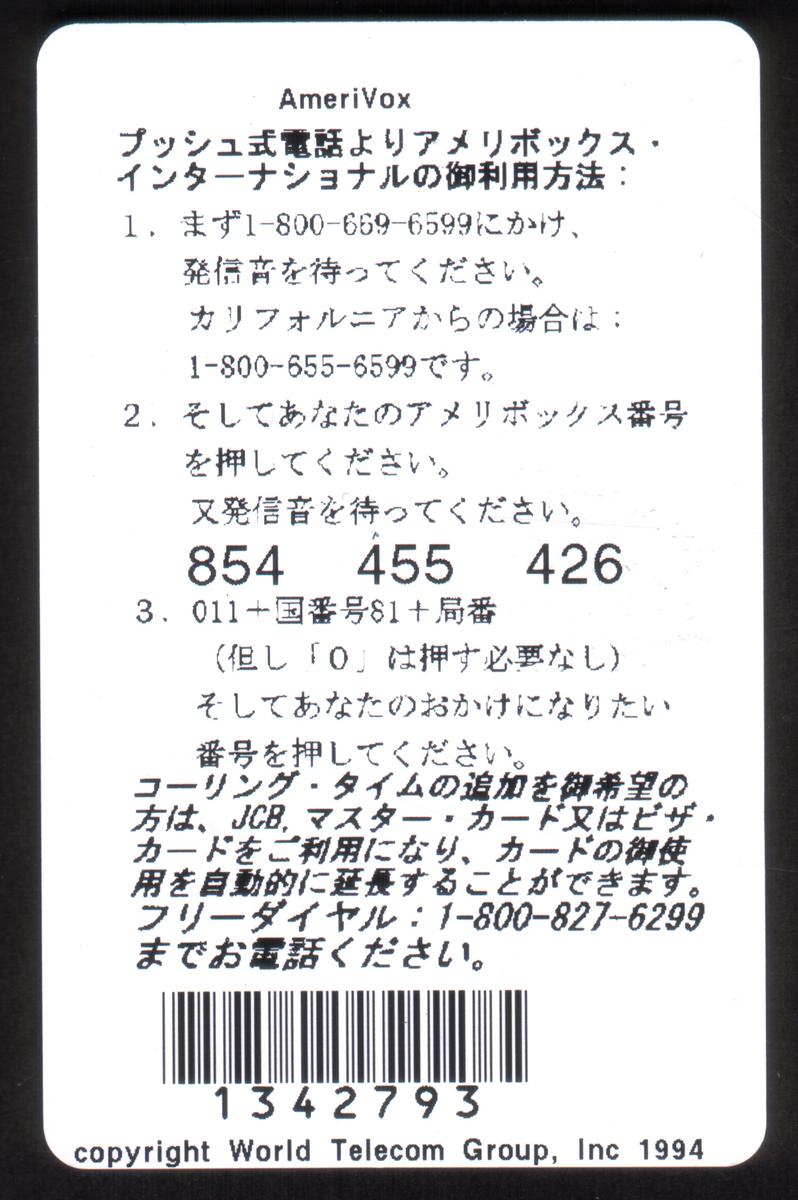 AmeriVox
プッシュ式電話よりアメリボックス・
インターナショナルの御利用方法：
１．まず1-800-669-6599にかけ、
発信音を待ってください。
カリフォルニアからの場合は：
1-800-655-6599です。
２．そしてあなたのアメリボックス番号
を押してください。
又発信音を待ってください。
854 455 426
３．011＋国番号81＋局番
（但し「０」は押す必要なし）
そしてあなたのおかけになりたい
番号を押してください。
コーリング・タイムの追加を御希望の
方は、JCB, マスター・カード又はビザ・
カードをご利用になり、カードの御使
用を自動的に延長することができます。
フリーダイヤル：1-800-827-6299
までお電話ください。
1342793
copyright World Telecom Group, Inc 1994